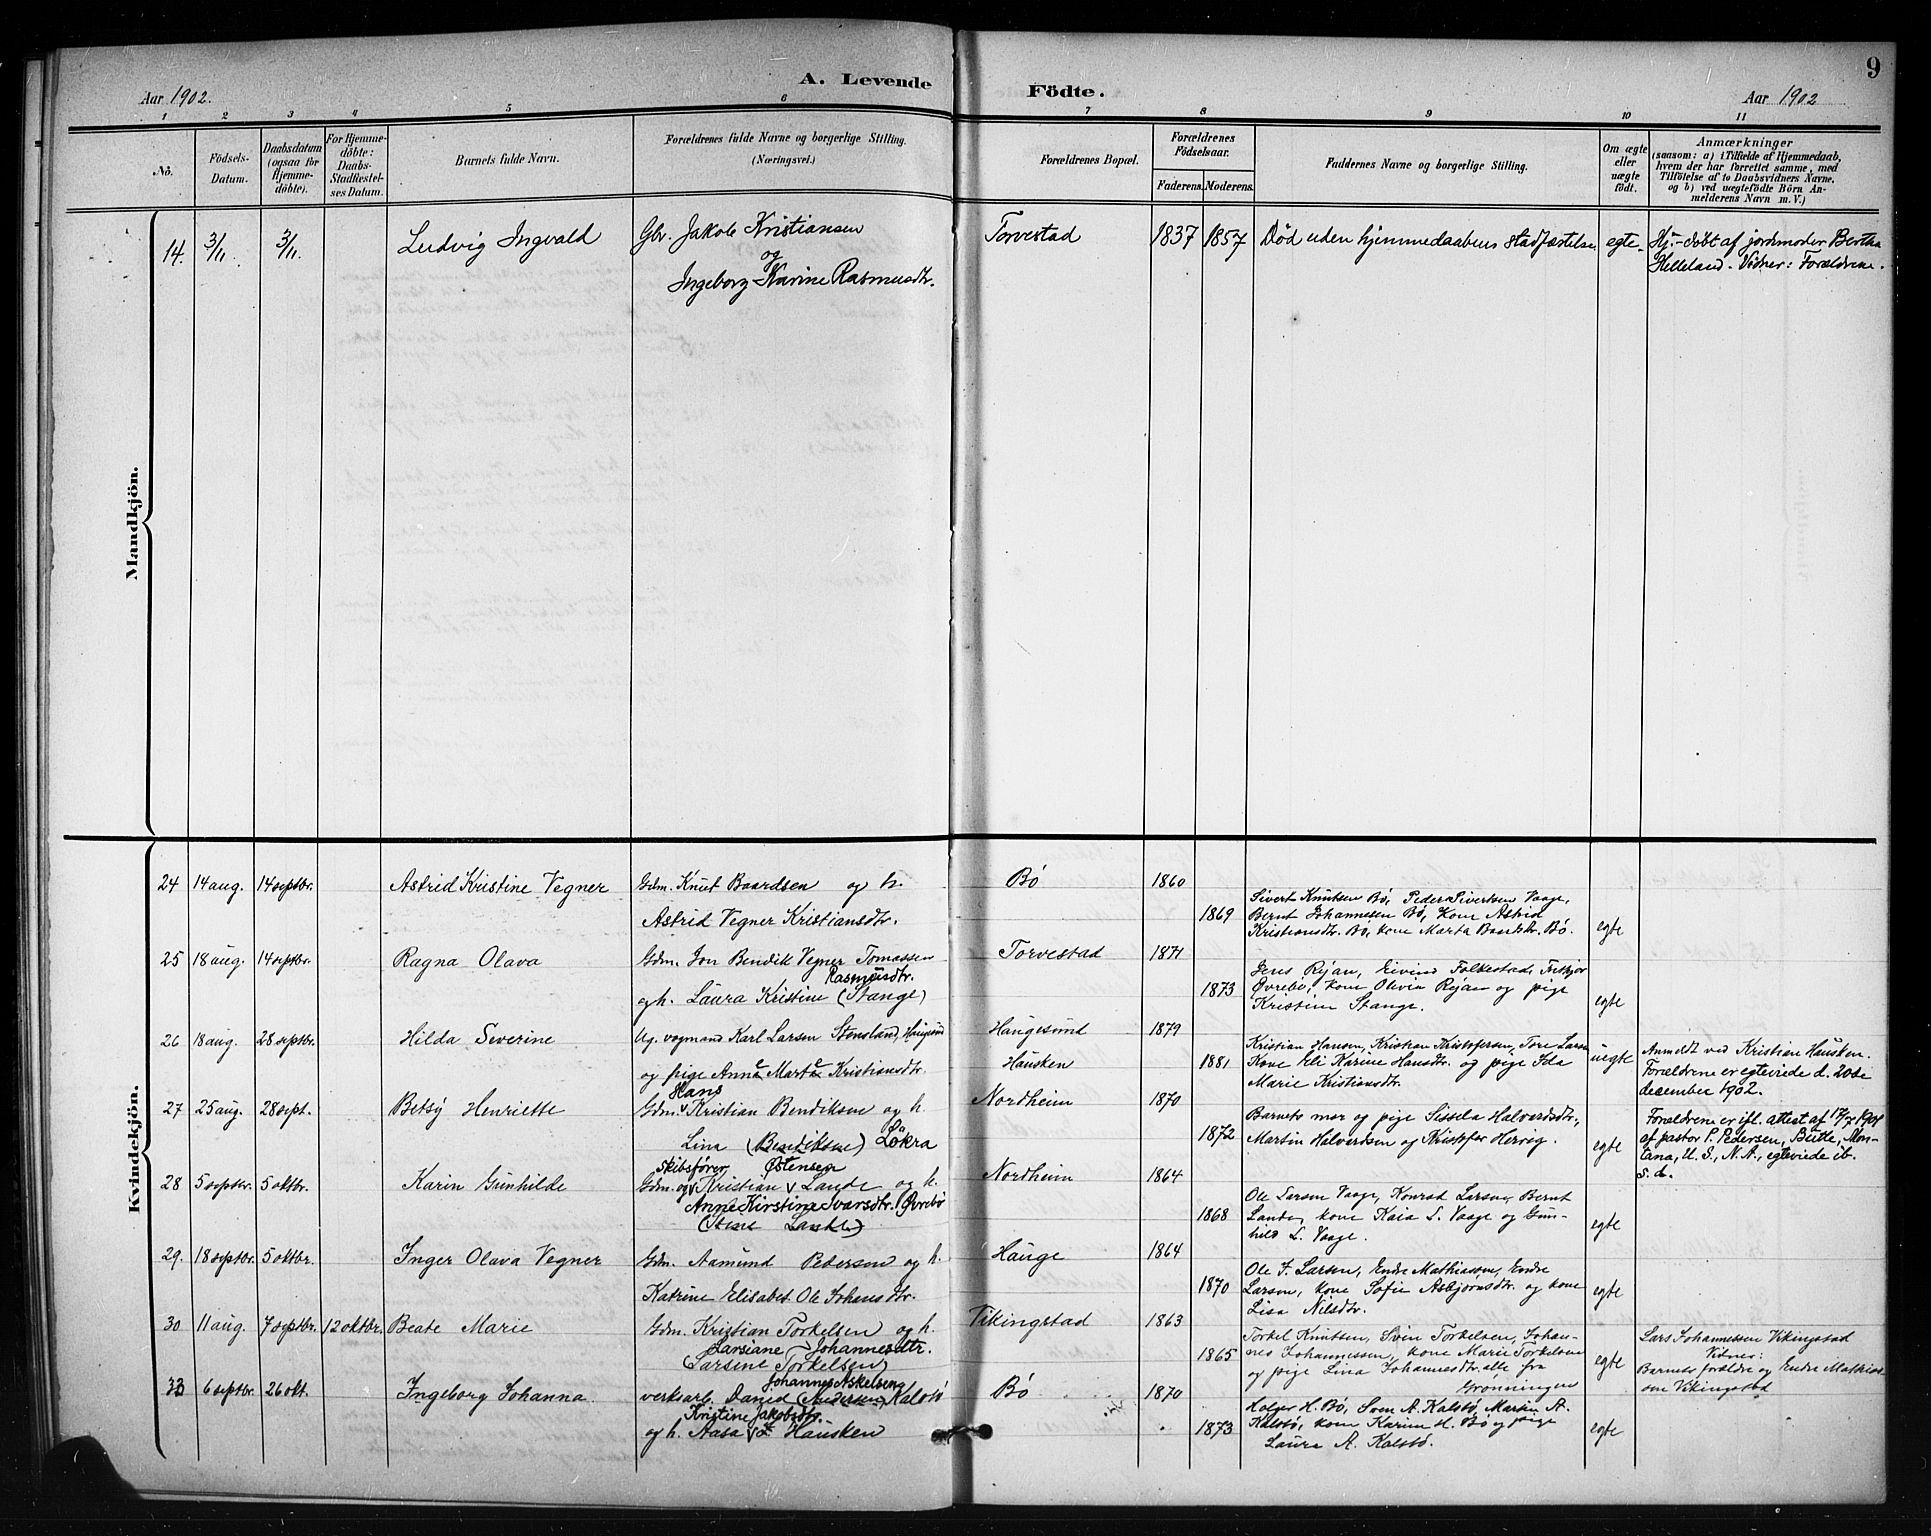 A. Levende Födte.
9
Aar 1902.
Aar 1902
1 2 3 4 5 6 7 8 9 10 11
No.
Födsels-Datum.
Daabsdatum (ogsaa for Hjemme-döbte).
For Hjemme-döbte: Daabs-Stadfæstel-ses Datum.
Barnets fulde Navn.
Forældrenes fulde Navne og borgerlige Stilling. (Næringsvei.)
Forældrenes Bopæl.
Forældrenes Födselsaar.
Faderens. Moderens.
Faddernes Navne og borgerlige Stilling.
Om ægte eller uægte födt.
Anmærkninger
(saasom: a) i Tilfælde af Hjemmedaab, hvem der har forrettet samme, med Tilföielse af to Daabsvidners Navne, og b) ved uægtefödte Börn Anmelderens Navn m. V.)
Mandkjön.
14. 3/11. 3/11. Ludvig Ingvald Gbr. Jakob Kristiansen Torvestad 1837 1857 Död uden hjemmedaabens stadfæstelse egte- Hj.-döbt af jordmoder Bertha
og
Ingeborg Karine Rasmusdtr. Helleland. Vidner: Forældrene.
Kvindekjön.
24 14 aug. 14 septbr. Astrid Kristine Vegner Gdm. Knut Baardsen og h. Bö 1860
Astrid Vegner Kristiansdtr. 1869 Sivert Knutsen Bö, Peder Sivertsen Vaage,
Bernt Johannesen Bö, kone Astrid
Kristiansdtr. Bö, kone Marta Baardsdtr. Bö. egte
25 18 aug. 14 septbr. Ragna Olava Gdm. Jon Bendik Vegner Tomassen Torvestad 1871
Rasmusdtr.
og h. Laura Kristine (Stange) 1873 Jens Ryan, Eivind Folkestad, Fritjor
Övrebö, kone Olivia Ryan og pige
Kristine Stange. egte
26 18 aug. 28 septbr. Hilda Severine Ug. vognmand Karl Larsen Stensland, Haugesund Haugesund 1879
og pige Anna Marta Kristiansdtr. Hausken 1881 Kristian Hansen, Kristian Kristofersen, Tore Larsen
Kone Eli Karine Hansdtr. og pige Ida
Marie Kristiansdtr. uegte Anmeldt ved Kristian Hausken.
Forældrene er egteviede d. 20de
december 1902.
27 25 aug. 28 sept. Betsy Henriette Gdm. Hans Kristian Bendiksen og h. Nordheim 1870
Lina (Bendiksen) Lökra 1872 Barnets mor og pige Sissela Halvordsdtr.,
Martin Halvordsen og Kristoffer Hervig. egte Forældrene er ifl. attest af 17/7 1901
af pastor P. Pedersen, Butte, Mon-
tana, U. S., N. A., egteviede ib.
s. d.
28 5 septbr. 5 oktbr. Karin Gunhilde Gdm. og Skibsförer Kristian Östensen Lande og h. Nordheim 1864
Anne Kirstine Ivarsdtr. Övrebö
(Stine Lande) 1868 Ole Larsen Vaage, Konrad Larsen, Bernt
Lande, kone Kaia L. Vaage og Gun-
hild L. Vaage. egte
29. 18 septbr. 5 oktbr. Inger Olava Vegner Gdm. Aamund Pedersen og h. Hauge 1864
Katrine Elisabet Ole Johansdtr. 1870 Ole J. Larsen, Endre Mathiassen, Endre
Larsen, kone Sofie Asbjörnsdtr. og kone
Lisa Nilsdtr. egte
30 11 aug. 7 septbr. 12 oktbr. Beate Marie Gdm. Kristian Torkelsen og h. Vikingstad 1863
Larsiane Johannesdtr.
(Larsine Torkelsen) 1865 Torkel Knutsen, Sven Torkelsen, Johan-
nes Johannessen, kone Marie Torkelsen
og pige Lina Johannesdtr. alle fra
Grönningen egte Lars Johannessen Vikingstad
Vidner:
Barnets forældre og Endre Mathias-
sen Vikingstad
33 6 septbr. 26 okt. Ingeborg Johanna. verksarb. David Johannes Askelsen (Andersen) Kalstö Bö 1870
Kristine Jakobsdtr.
og h. Aasa Hausken 1873 Holger H. Bö, Sven A. Kalstö, Martin A.
Kalstö, kone Karine H. Bö og pige
Laura A. Kalstö. egte